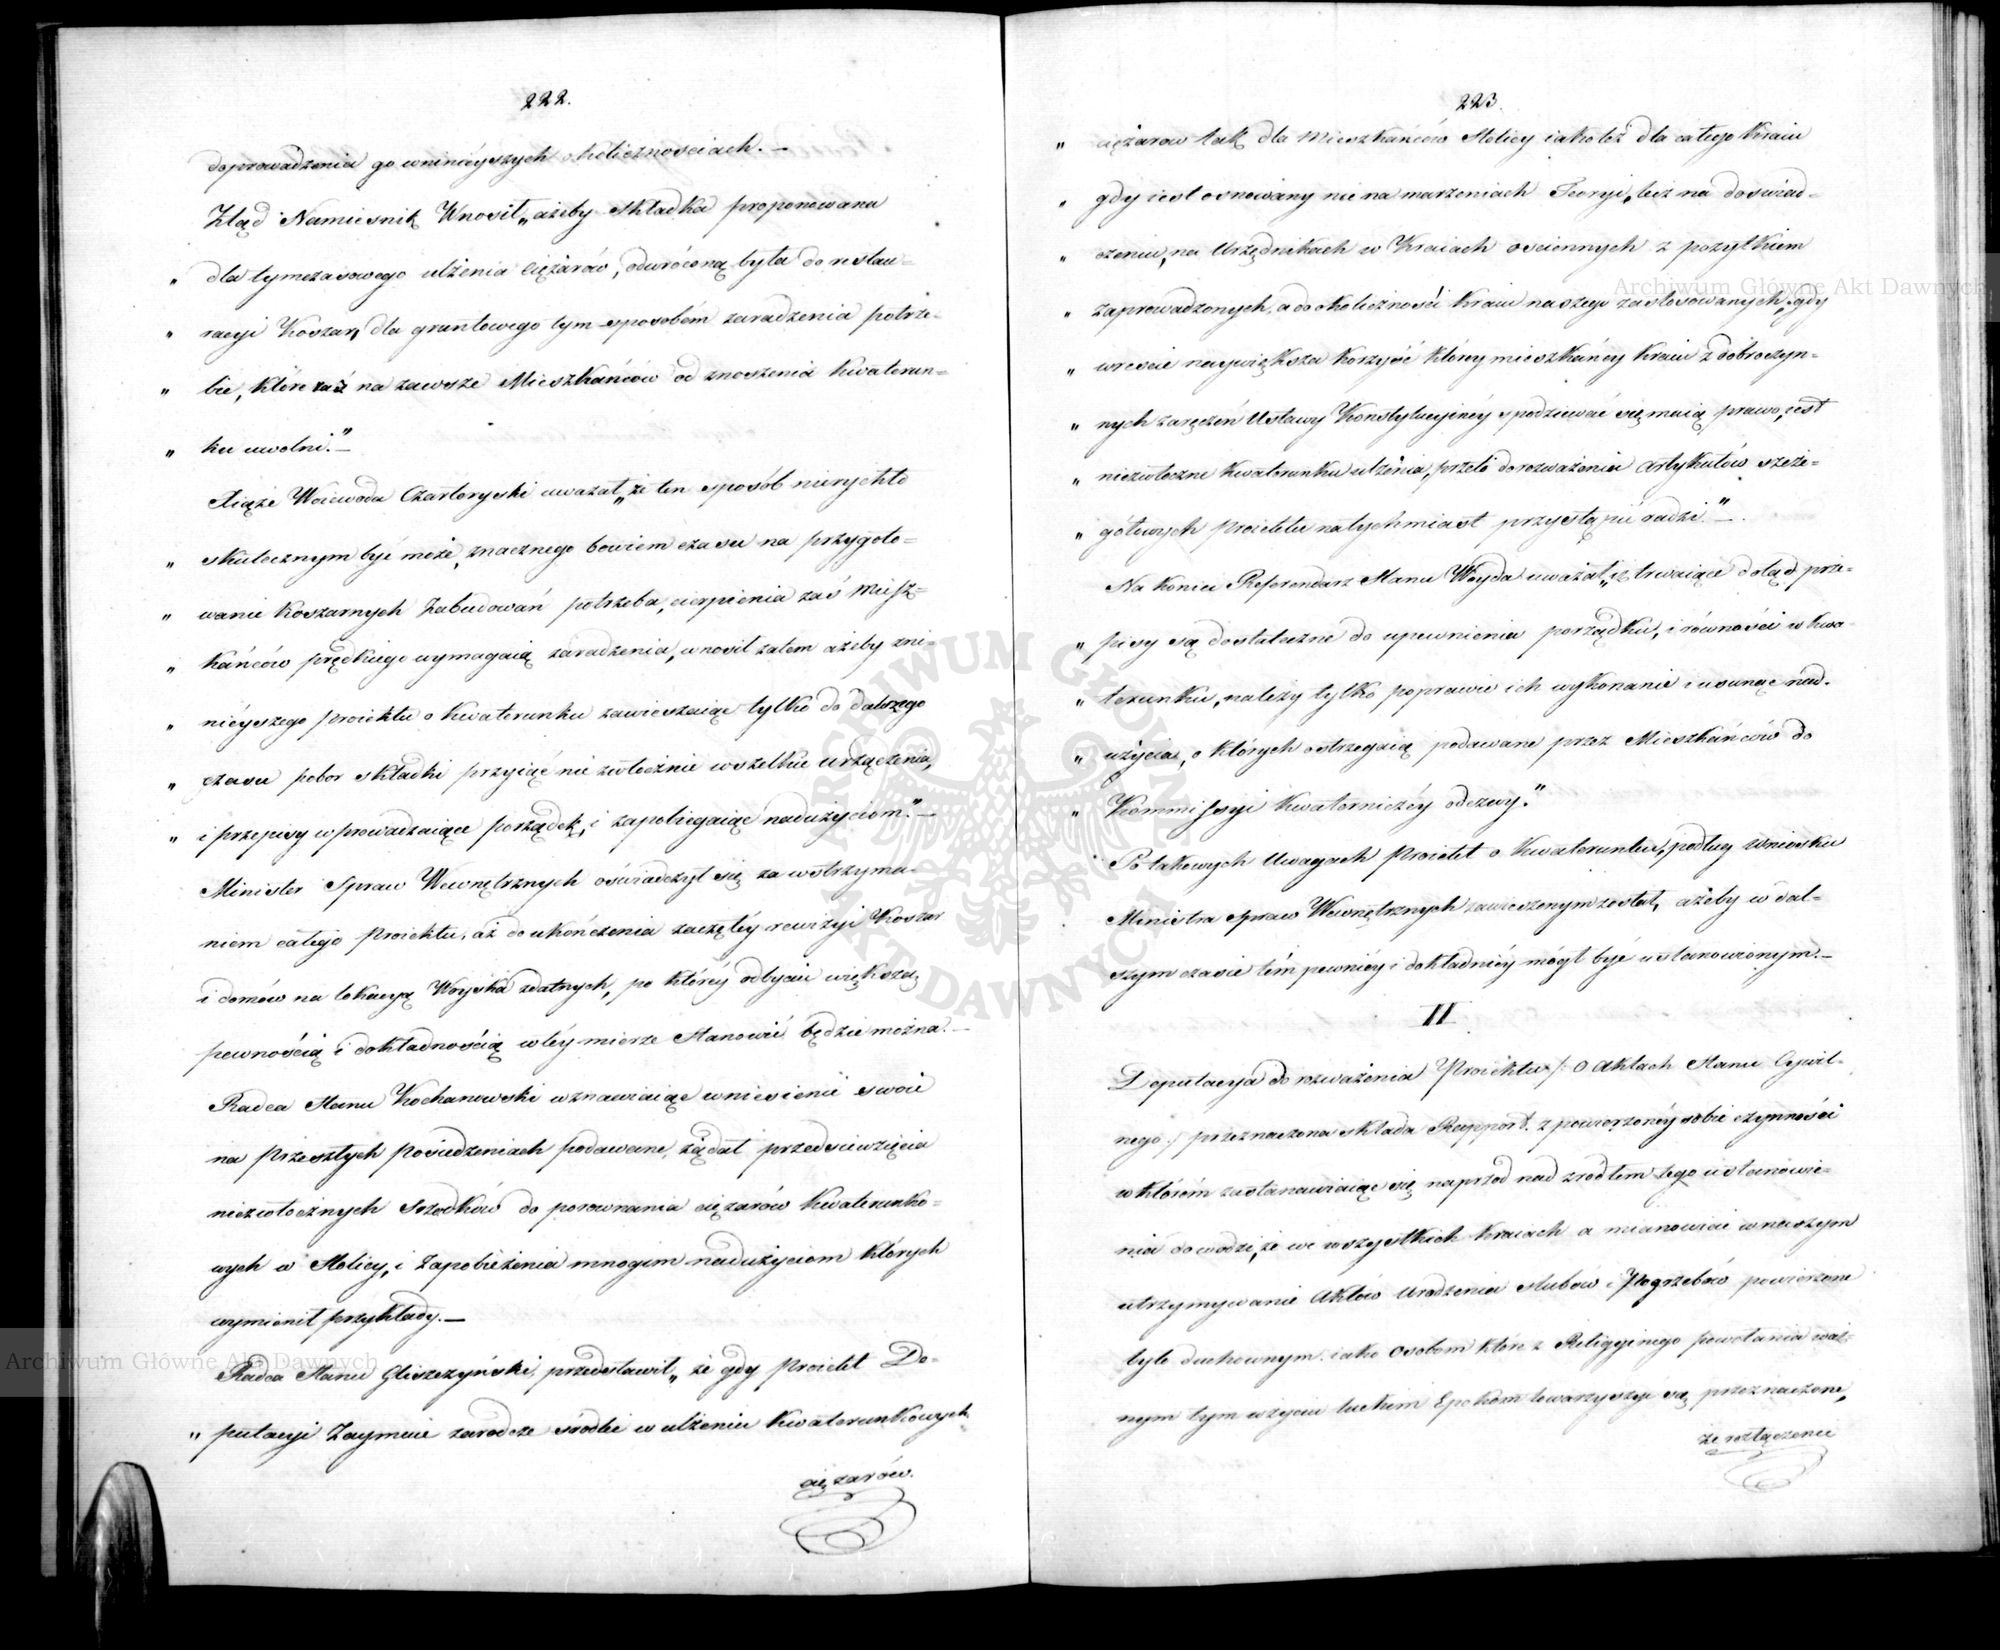 222.
doprowadzenia go w ninieyszych okolicznosciach. —
Ztąd Namiesnik Wnosił „ażeby składka proponowana
„ dla tymczasowego ulżenia ciężarów, odwróconą była do restau-
„ racyi Koszar, dla gruntowego tym sposobem zaradzenia potrze-
„ bie, które zaś na zawsze Mieszkańców od znoszenia kwaterun-
„ ku uwolni.” —
Xiąże Woiewoda Czartoryski uważał „że ten sposób nierychło
„ skutecznym być może, znacznego bowiem czasu na przygoto-
„ wanie koszarnych Zabudowań potrzeba, cierpienia zaś Miesz-
„ kańców prędkiego wymagaią zaradzenia, wnosił zatem ażeby zni-
„ nieyszego proiektu o kwaterunku zawieszaiąc tylko do dalszego
„ czasu pobor składki przyiąć nie zwłocznie wszelkie urządzenia,
„ i przepisy wprowadzaiące porządek, i zapobiegaiące nadużyciom.” —
Minister Spraw Wewnętrznych oświadczył się za wstrzyma-
niem całego Proiektu, aż do ukończenia zaczętéy rewizyi Koszar
i domów na lokacyą Woyska zdatnych, po któréy odbyciu większą
pewnością i dokładnością w téy mierze Stanowić będzie można. —
Radca Stanu Kochanowski wznawiaiąc wniesienie swoie
na przeszłych Posiedzeniach podawane, żądał przedsiewzięcia
niezwłocznych Srzodków do porownania ciężarów kwaterunko-
wych w Stolicy, i Zapobieżenia mnogim nadużyciom których
wymienił przykłady. —
Radca Stanu Gliszczyński, przedstawił „że gdy Proiekt De-
„ putacyi Zaymuie zaradcze środki w ulżeniu kwaterunkowych
ciężarów.
223.
„ ciężarow tak dla Mieszkańców Stolicy iako też dla całego Kraiu
„ gdy iest osnowany nie na marzeniach Teoryi, lecz na doswiad-
„ czeniu, na Urzędnikach w Kraiach osciennych z pozytkiem
„ zaprowadzonych, a do okoliczności Kraiu naszego zastosowanych, gdy
„ wresćie naywiększa korzyść którey mieszkańcy Kraiu z dobroczyn-
„ nych zaręczeń Ustawy Konstytucyinéy spodziewać się maią prawo, iest
„ niezwłoczne kwaterunku ulżenia, przeto do rozważenia artykułów szcze-
„ gółowych proiektu natychmiast przystąpić radzi” —
Na koniec Referendarz Stanu Woyda uważał „iż trwaiące dotąd prze-
„ pisy są dostateczne do upewnienia porządku, i równości w kwa-
„ terunku, należy tylko poprawić ich wykonanie i usunąć nad-
„ użycia, o których ostrzegaią podawane przez Mieszkańców do
„ Kommissyi kwaterniczéy odezwy.”
Po takowych Uwagach Proiekt o kwaterunku, podług Wniosku
Ministra Spraw Wewnętrznych zawieszonym został, ażeby w dal-
szym czasie tém pewniéy i dokładniéy mógł być ustanowionym. —
II
Deputacya do rozważenia Proiektu /: o Aktach Stanu Cywil-
nego :/ przeznaczona składa Rapport z powierzonéy sobie czynności
w którém zastanawiaiąc się naprzod nad zrodłem tego ustanowie-
nia dowodzi, że we wszystkich kraiach a mianowicie w naszym
utrzymywanie Aktów Urodzenia slubów i Pogrzebów powierzone
było duchownym iako Osobom które z Religiynego powołania waż-
nym tym w życiu ludzkim Epokom towarzyszyć są przeznaczone,
że rozłączenie
Archiwum Główne Akt Dawnych
Archiwum Główne Akt Dawnych
ARCHIWUM GŁÓWNE AKT DAWNYCH